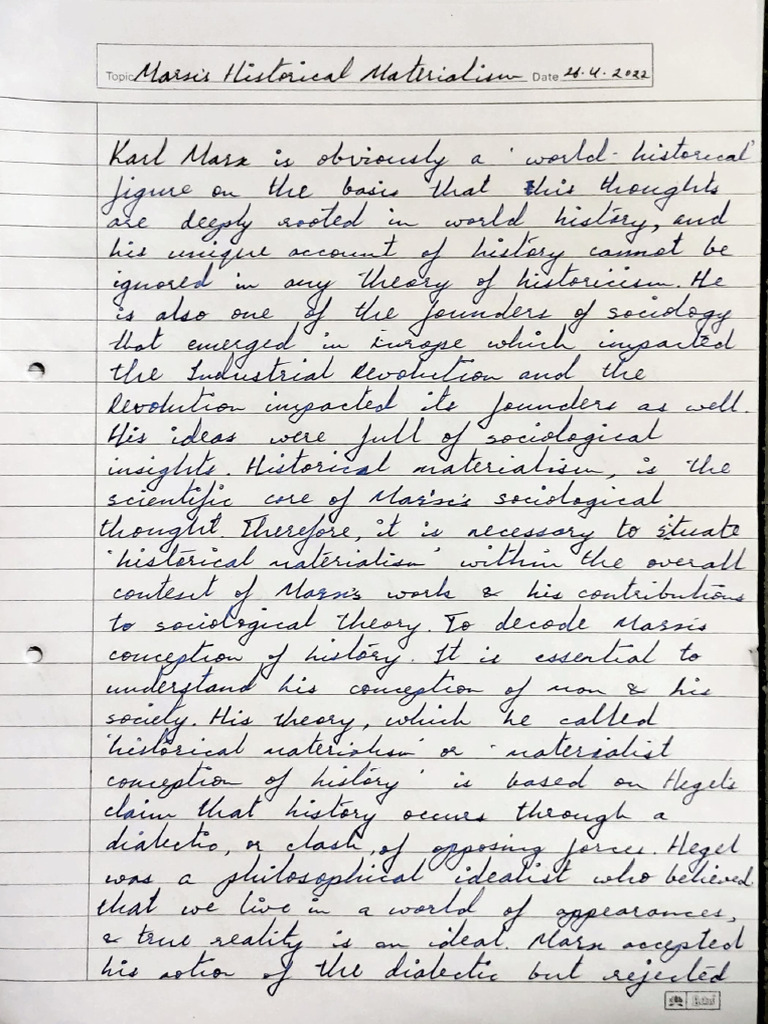 Topic Marx's Historical Materialism Date 26.4.2022
Karl Marx is obviously a 'world-historical'
figure on the basis that this thoughts
are deeply rooted in world history, and
his unique account of history cannot be
ignored in any theory of historicism. He
is also one of the founders of sociology
that emerged in Europe which impacted
the Industrial Revolution and the
Revolution impacted its founders as well.
His ideas were full of sociological
insights. Historical materialism, is the
scientific core of Marx's sociological
thought. Therefore, it is necessary to situate
'historical materialism' within the overall
context of Marx's work & his contributions
to sociological theory. To decode Marx's
conception of history. It is essential to
understand his conception of man & his
society. His theory, which he called
'historical materialism' or 'materialist
conception of history' is based on Hegel's
claim that history occurs through a
dialectic, or clash, of opposing forces. Hegel
was a philosophical idealist who believed
that we live in a world of appearances,
& true reality is an ideal. Marx accepted
his notion of the dialectic but rejected